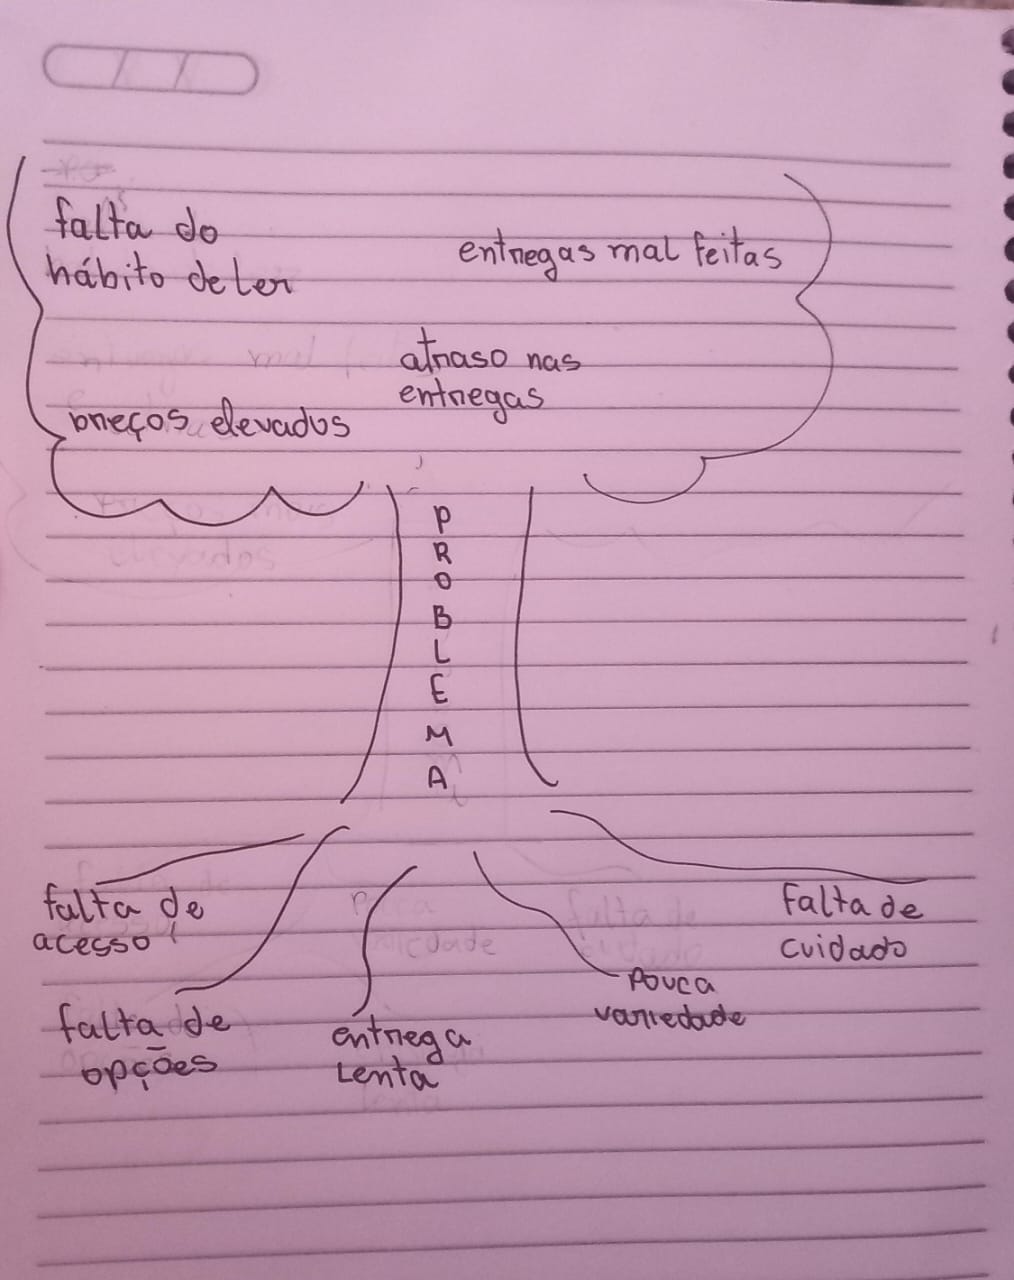 falta do
hábito de ler
entregas mal feitas
atraso nas
entregas
preços elevados
P
R
O
B
L
E
M
A
falta de
acesso
falta de
opções
entrega
lenta
pouca
variedade
falta de
cuidado